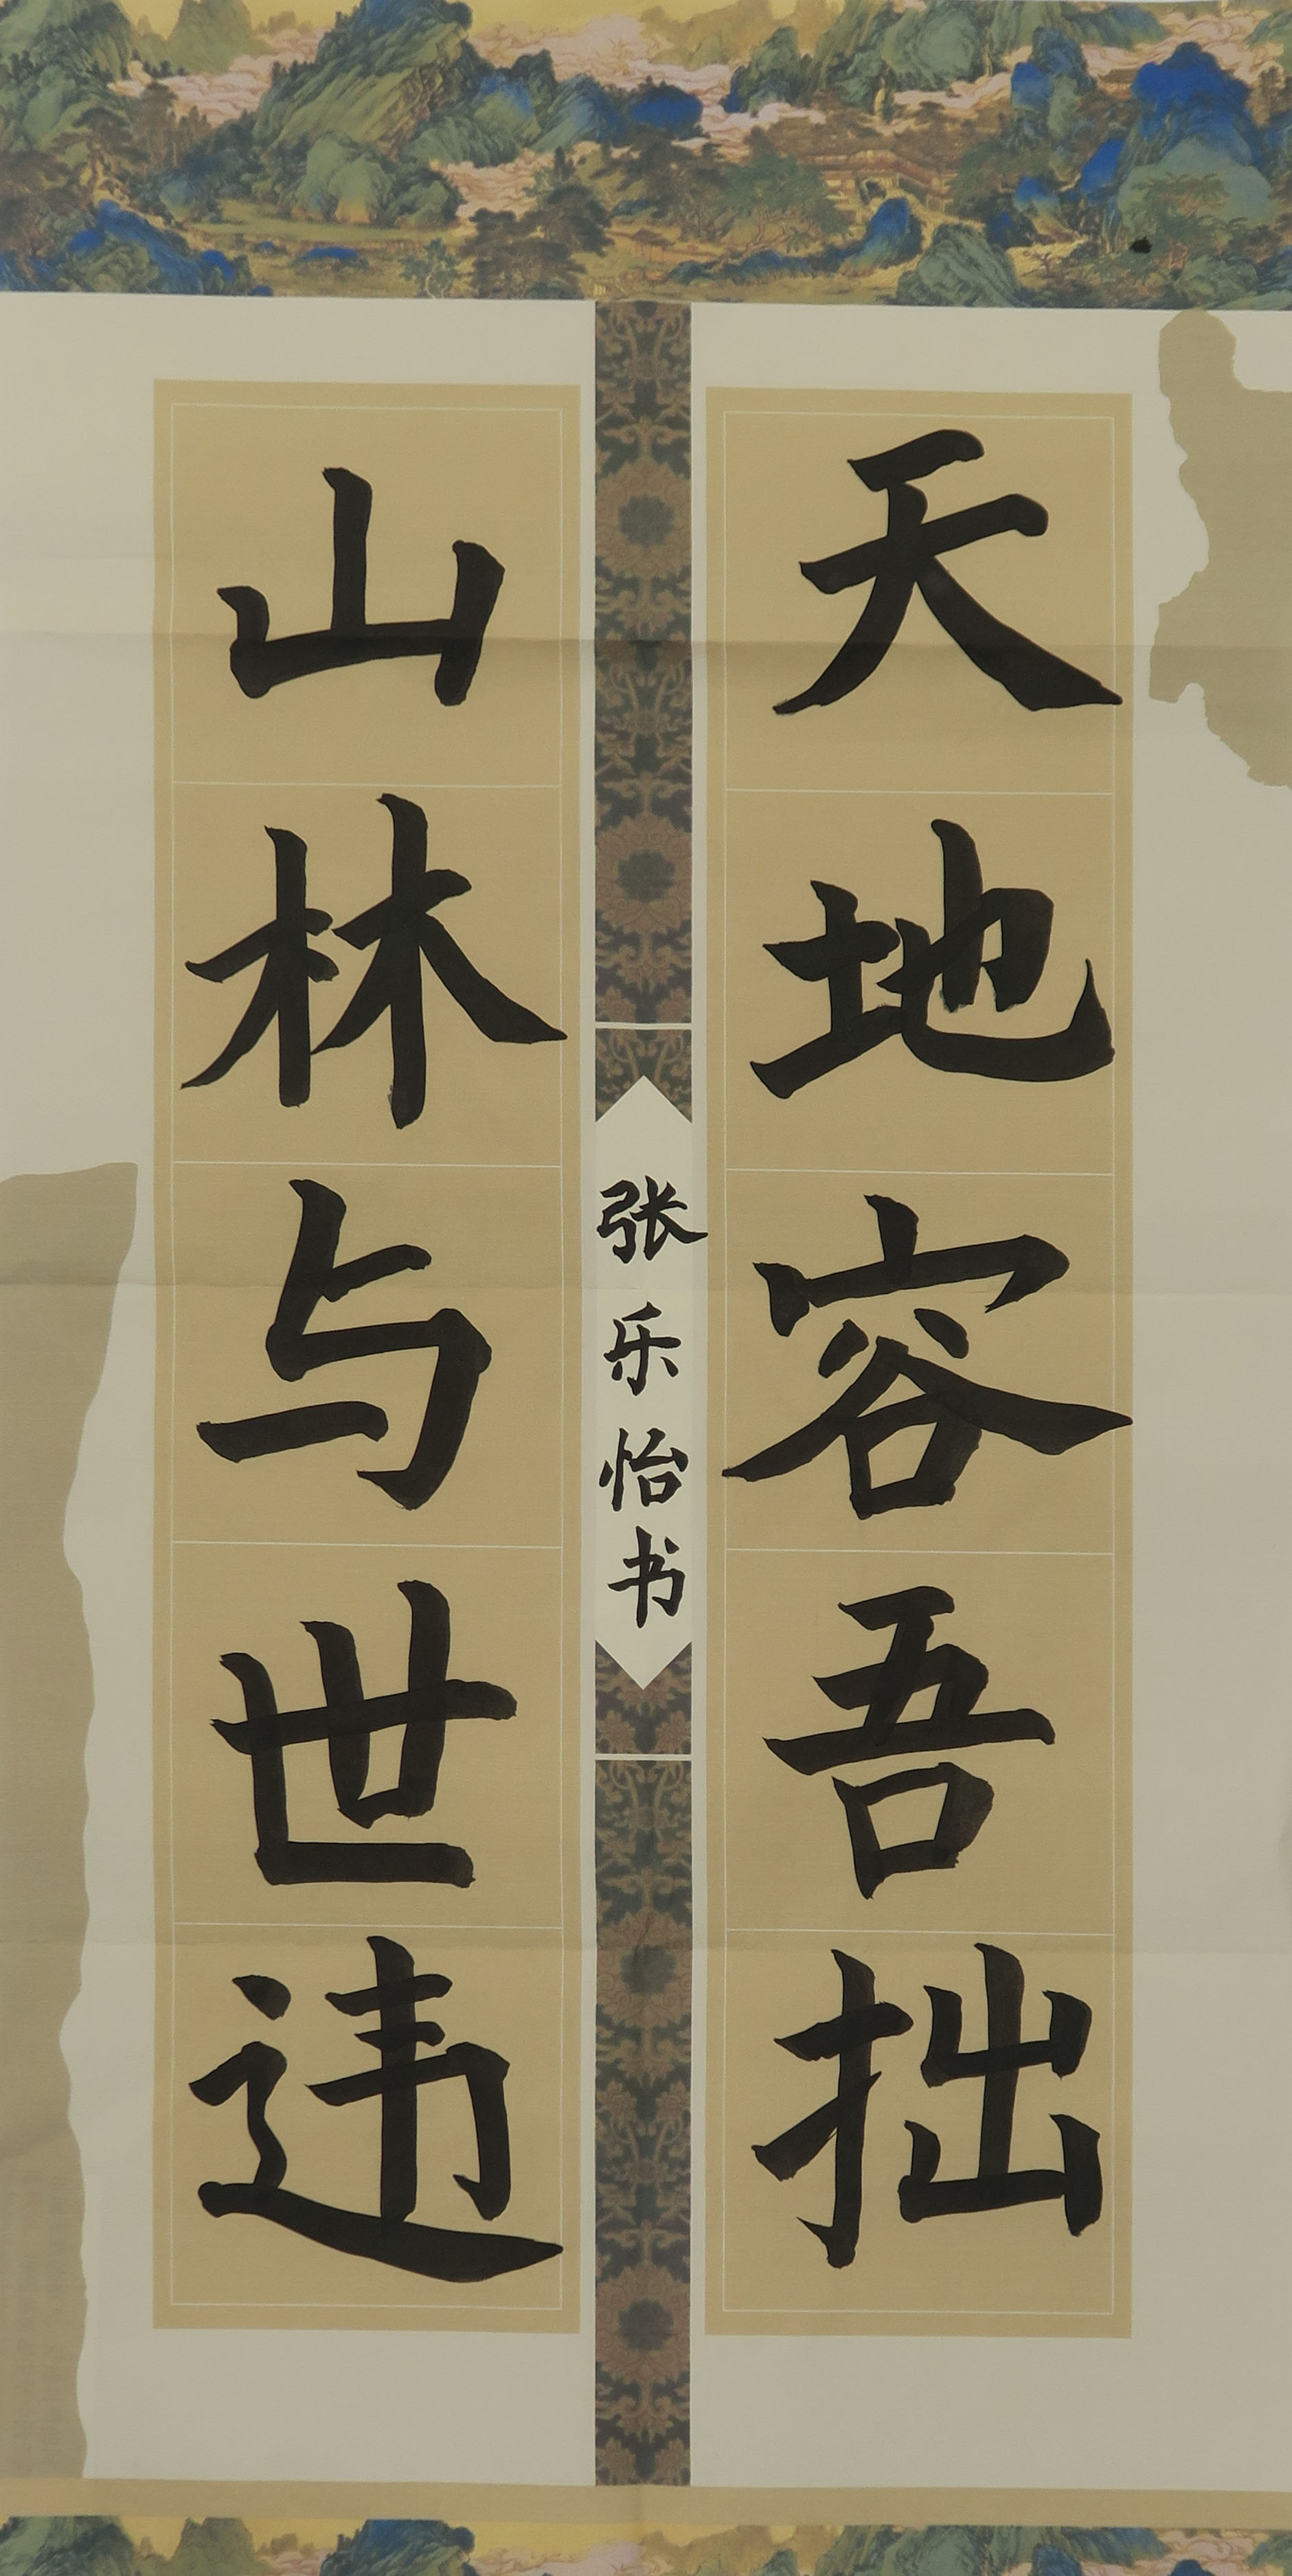 天地容吾拙
山林与世违
张乐怡书